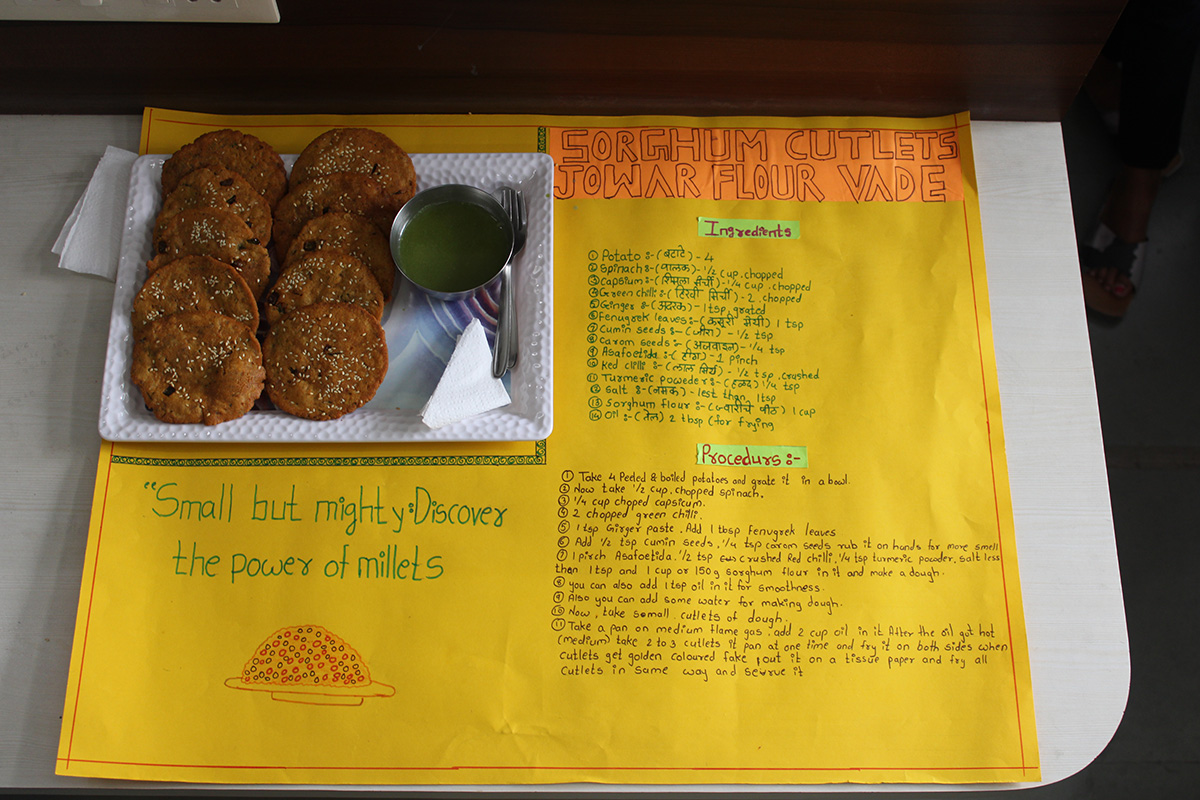 SORGHUM CUTLETS
JOWAR FLOUR VADE
Ingredients
① Potato :- (बटाटे) - 4
② Spinach :- (पालक) - 1/2 cup chopped
③ Capsium :- (शिमला मिर्ची) - 1/4 cup chopped
④ Green chilli :- (हिरवी मिर्ची) - 2 chopped
⑤ Ginger :- (अदरक) - 1 tsp grated
⑥ Fenugrek leaves :- (कसूरी मेथी) 1 tsp
⑦ Cumin seeds :- (जीरा) - 1/2 tsp
⑧ Carom seeds :- (अजवाइन) - 1/4 tsp
⑨ Asafoetida :- (हींग) - 1 pinch
⑩ Red chilli :- (लाल मिर्च) - 1/2 tsp crushed
⑪ Turmeric poweder :- (हळद) 1/4 tsp
⑫ Salt :- (नमक) - lest than 1tsp
⑬ Sorghum flour :- (ज्वारीचे पीठ) 1 cap
⑭ Oil :- (तेल) 2 tbsp (for frying
Procedurs :-
① Take 4 Peeled & boiled potatoes and grate it in a bowl.
② Now take 1/2 cup chopped spinach.
③ 1/4 cup choped capsicum.
④ 2 chopped green chilli.
⑤ 1 tsp Girger paste. Add 1 tbsp Fenugrek leaves
⑥ Add 1/2 tsp cumin seeds, 1/4 tsp carom seeds rub it on hands for more smell
⑦ 1 pirch Asafoetida. 1/2 tsp crushed Red chilli, 1/4 tsp turmeric powder, salt less
than 1 tsp and 1 cup or 150g sorghum flour in it and make a dough.
⑧ you can also add 1 tsp oil in it for smoothness.
⑨ Also you can add some water for making dough.
⑩ Now, take small cutlets of dough.
⑪ Take a pan on medium flame gas. add 2 cup oil in it After the oil got hot
(medium) take 2 to 3 cutlets it pan at one time and fry it on both sides when
cutlets get golden coloured fake pout it on a tissue paper and fry all
cutlets in same way and serve it
"Small but mighty: Discover
the power of millets